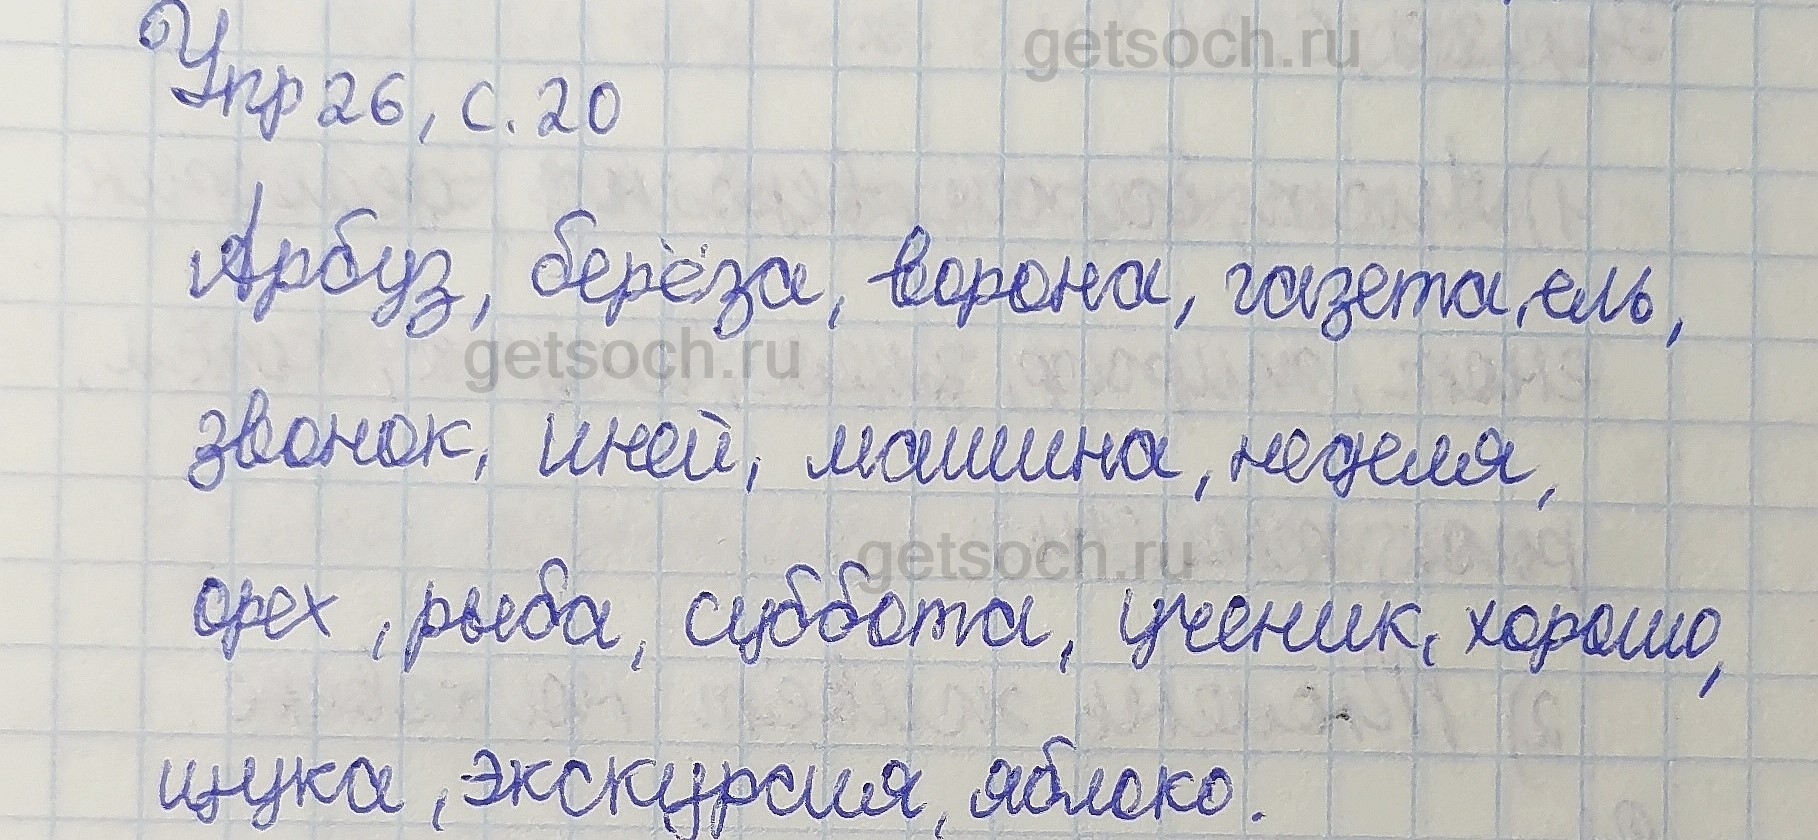 getsoch.ru
Упр 26, с. 20
Арбуз, берёза, ворона, газета, ель,
getsoch.ru
звонок, иней, машина, неделя,
getsoch.ru
орех, рыба, суббота, ученик, хорошо,
щука, экскурсия, яблоко.